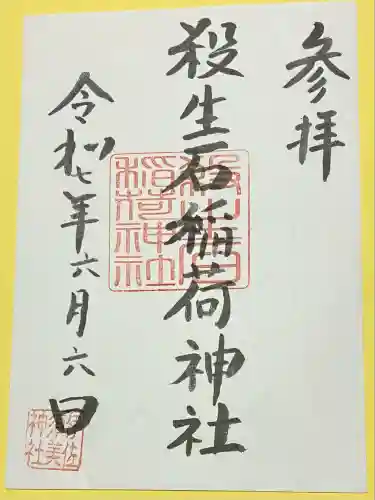 参拝
殺生石稲荷神社
令和七年六月六日
殺生石
稲荷神社